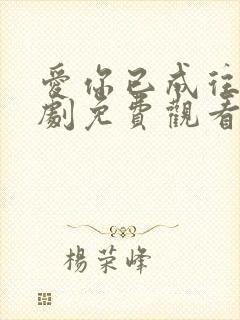 愛你已成往
劇免費觀看
楊荣峰